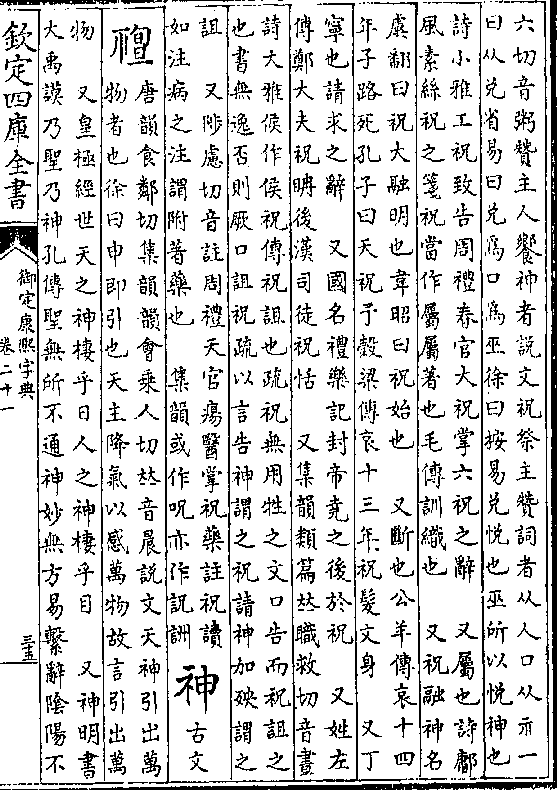 六切音粥贊主人饗神者說文祝祭主贊詞者从人口从示一
曰从兌省易曰兌爲口爲巫徐曰按易兌悅也巫所以悅神也
詩小雅工祝致告周禮春官大祝掌六祝之辭　又屬也詩鄘
風素絲祝之箋祝當作屬屬著也毛傳訓織也　又祝融神名
虞翻曰祝大融明也韋昭曰祝始也　又斷也公羊傳哀十四
年子路死孔子曰天祝予穀梁傳哀十三年祝髮文身　又丁
寧也請求之辭　又國名禮樂記封帝堯之後於祝　又姓左
傳鄭大夫祝聃後漢司徒祝恬　又集韻類篇𠀤職救切音晝
詩大雅侯作侯祝傳祝詛也疏祝無用牲之文口告而祝詛之
也書無逸否則厥口詛祝疏以言告神謂之祝請神加殃謂之
詛　又陟慮切音註周禮天官瘍醫掌祝藥註祝讀
如注病之注謂附著藥也　集韻或作呪亦作詋詶　神　古文
𥛠　唐韻食鄰切集韻韻會乘人切𠀤音晨說文天神引出萬
物者也徐曰申即引也天主降氣以感萬物故言引出萬
物　又皇極經世天之神棲乎日人之神棲乎目　又神明書
大禹謨乃聖乃神孔傳聖無所不通神妙無方易繫辭陰陽不
欽定四庫全書
御定康熙字典
卷二十一
三五